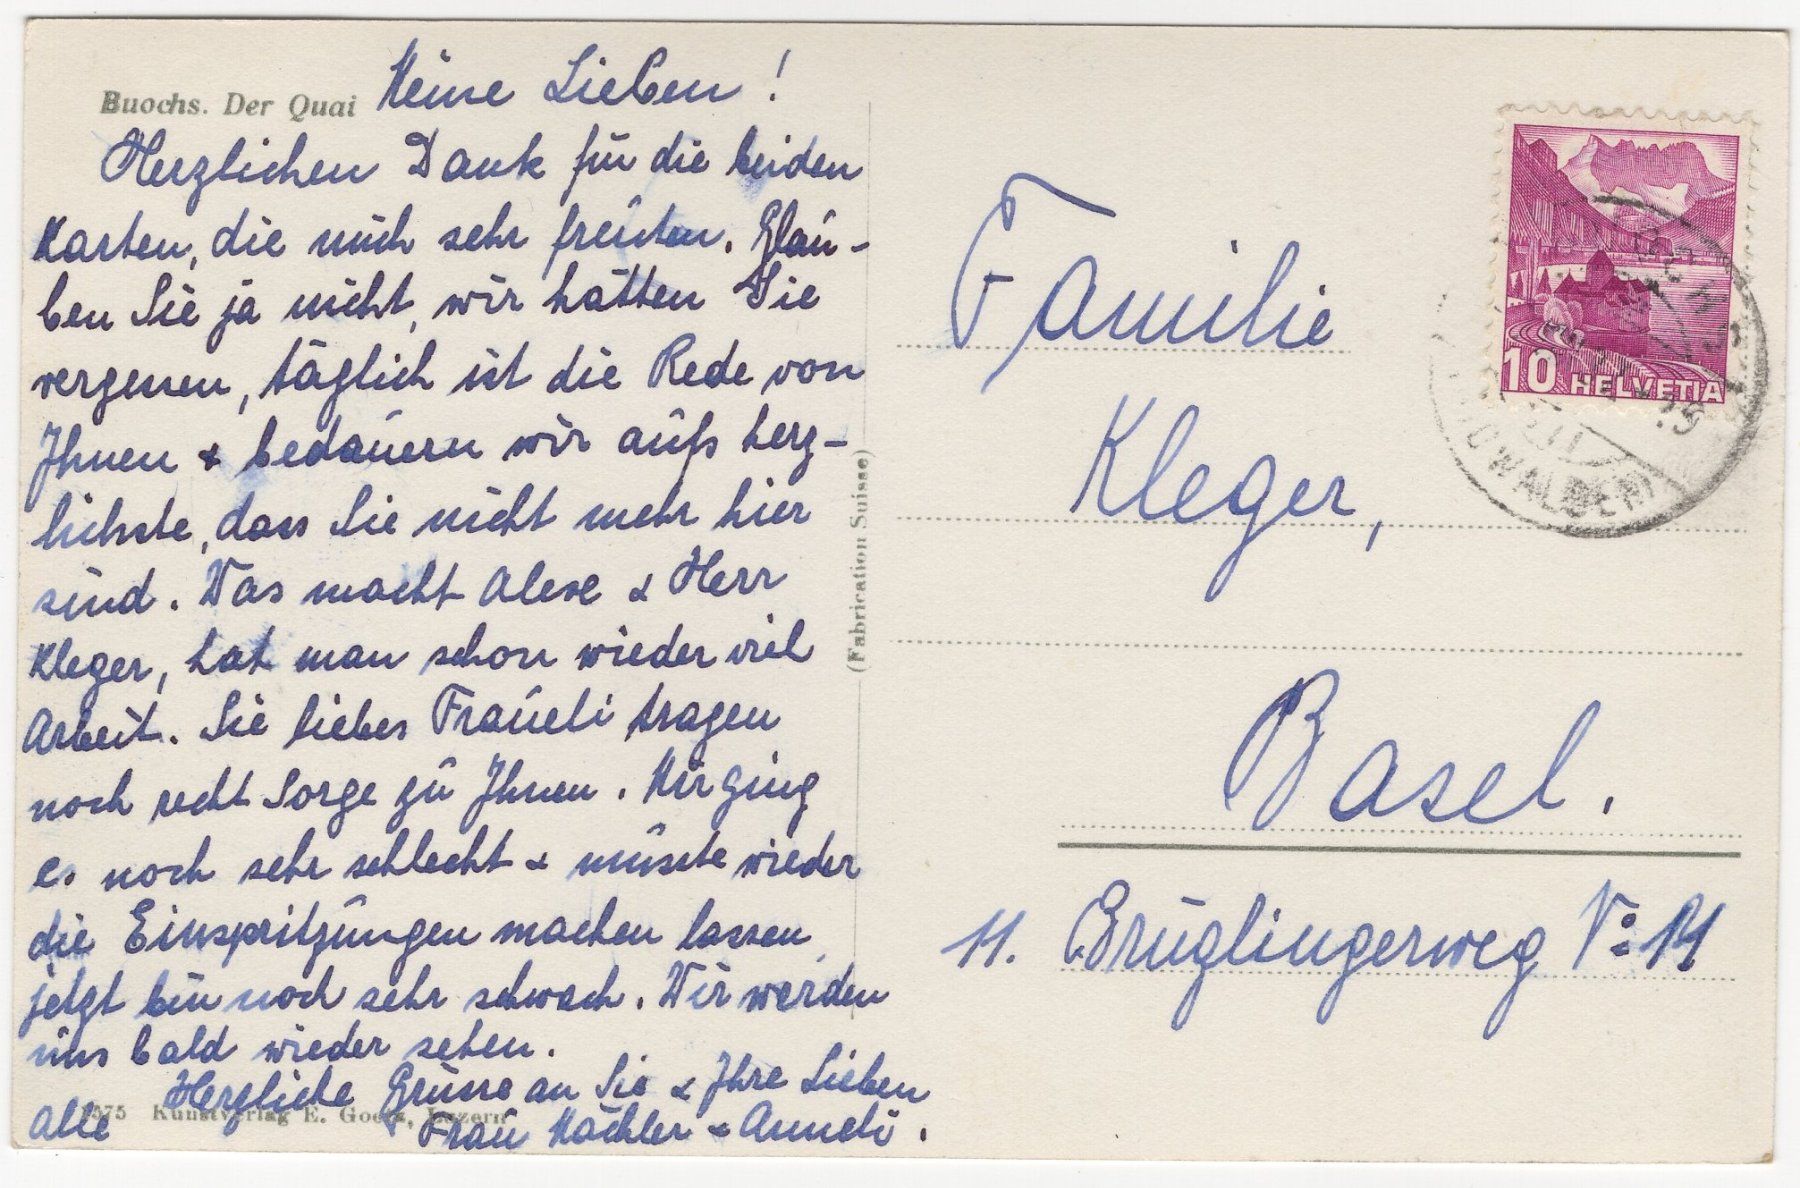 Buochs. Der Quai
Meine Lieben!
Herzlichen Dank für die beiden
Karten, die mich sehr freuten. Glau-
ben Sie ja nicht, wir hätten Sie
vergessen, täglich ist die Rede von
Ihnen & bedauern wir aufs herz-
lichste, dass Sie nicht mehr hier
sind. Was macht & Herr
Kleger, hat man schon wieder viel
Arbeit. Sie liebes Fraueli tragen
noch recht Sorge zu Ihnen. Mir ging
es noch sehr schlecht & müsste wieder
die Einspritzungen machen lassen,
jetzt bin noch sehr schwach. Wir werden
uns bald wieder sehen.
Herzliche Grüsse an Sie & Ihre Lieben
Alle Frau Mächler & Anneli.
Kunstverlag E. Goetz, Luzern
(Fabrication Suisse)
10 HELVETIA
NIDWALDEN
Familie
Kleger,
Basel.
11. Brüglingerweg No 11